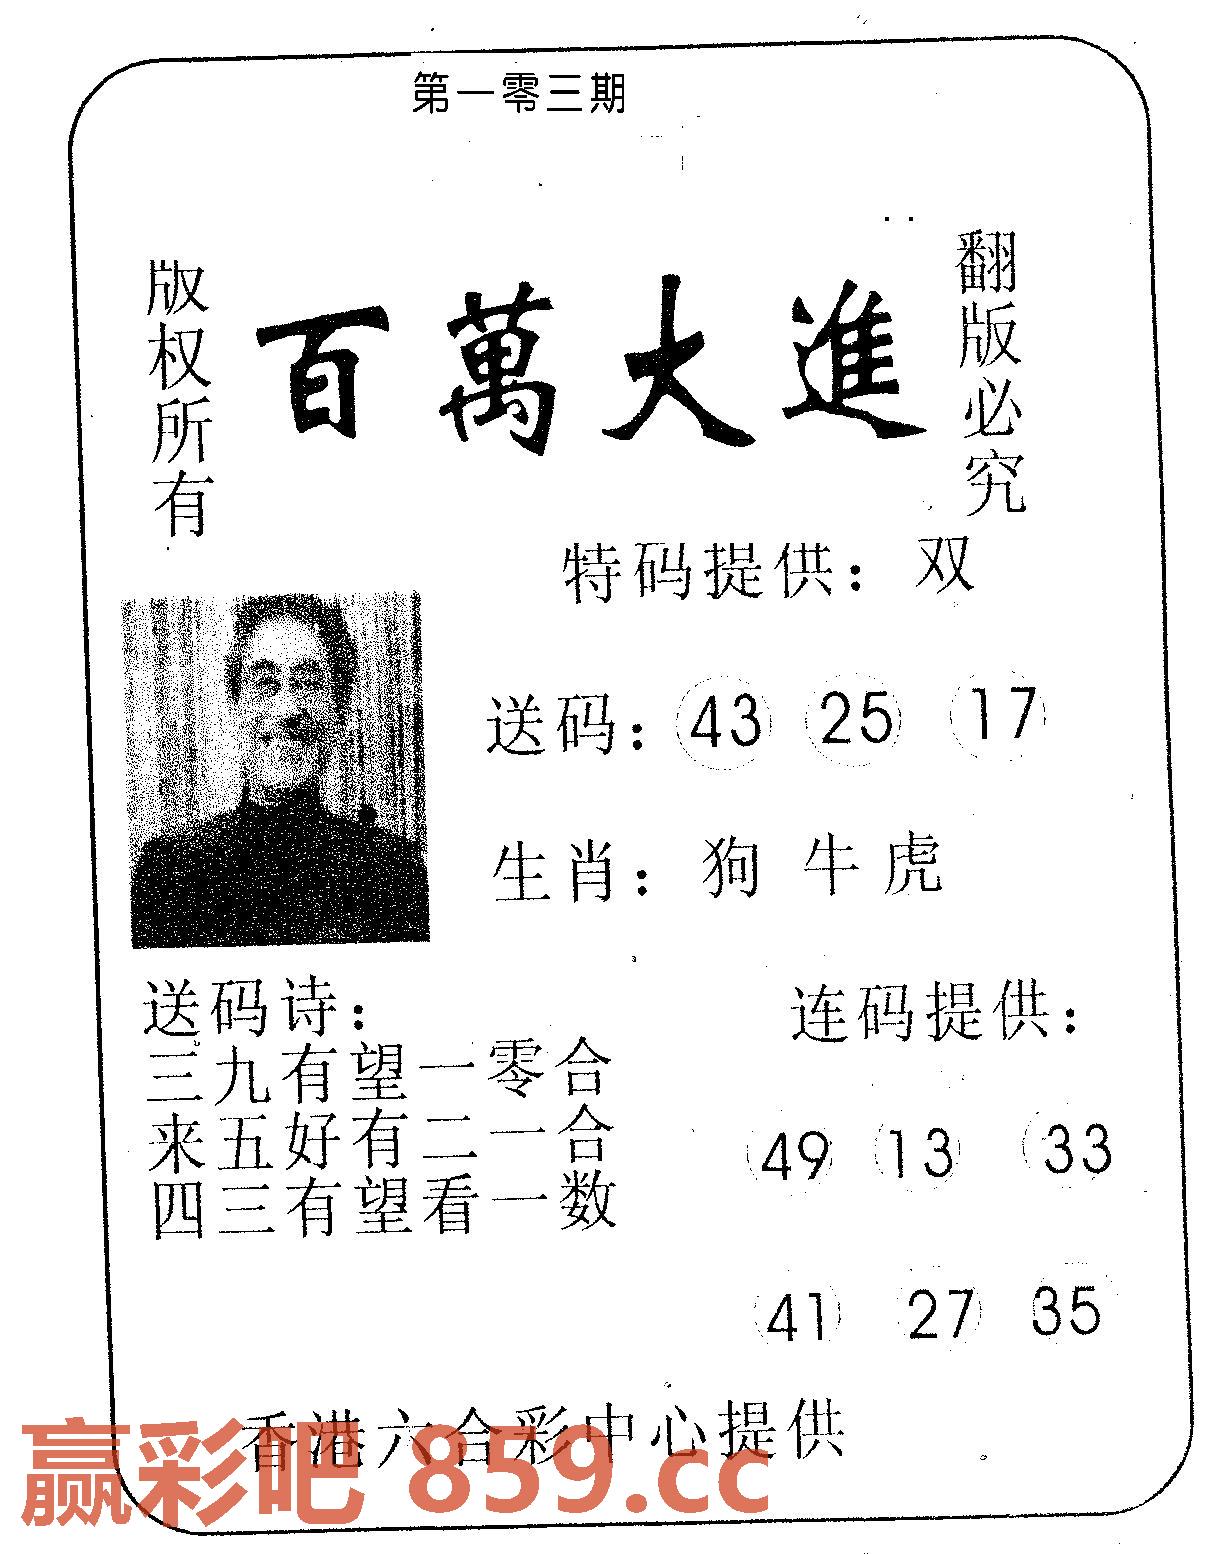 第一零三期
版权所有
百萬大進
翻版必究
特码提供：双
送码：43 25 17
生肖：狗 牛 虎
送码诗：
三九有望一零合
来五好有二一合
四三有望看一数
连码提供：
49 13 33
41 27 35
香港六合彩中心提供
赢彩吧 859.cc